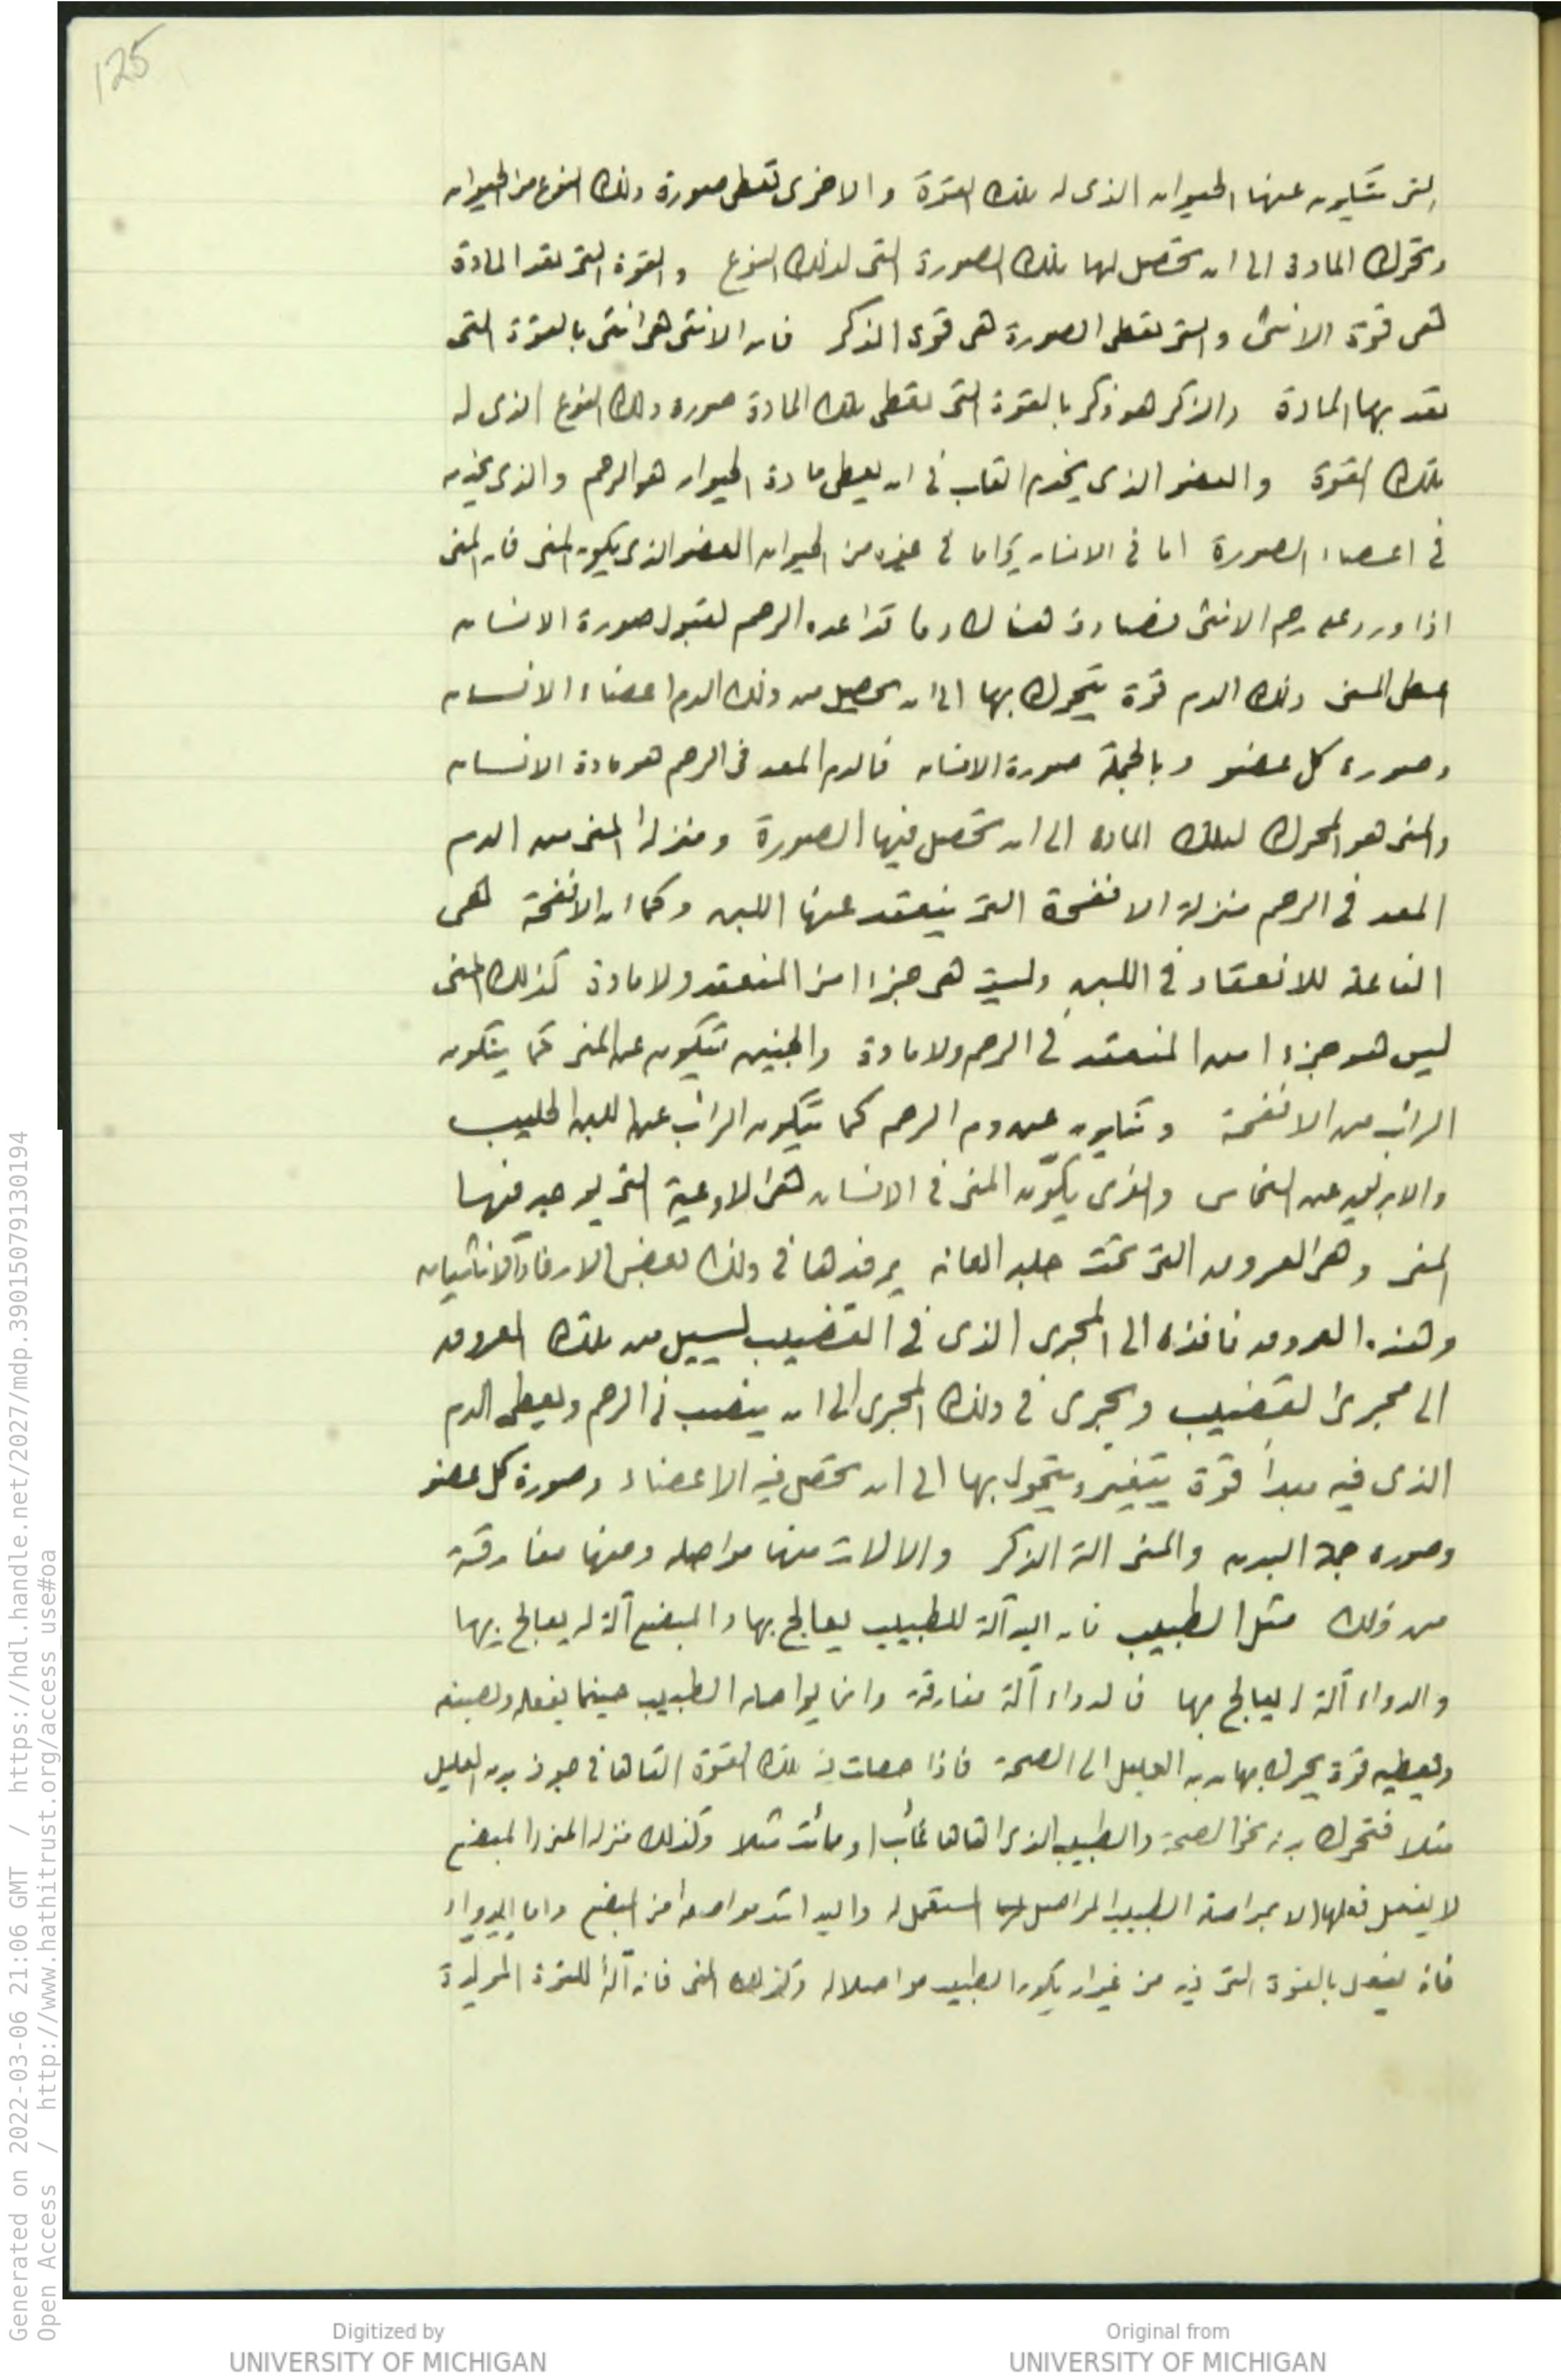 125
التى يتكون عنها الحيوان الذى له تلك القوة والاخرى تعطى صورة ذلك النوع من الحيوان
وتحرك المادة الى ان تحصل لها تلك الصورة التى لذلك النوع والقوة التى تعد المادة
هى قوة الانثى والتى تعطى الصورة هى قوة الذكر فان الانثى هى انثى بالقوة التى
تعد بها المادة والذكر هو ذكر بالقوة التى تعطى تلك المادة صورة ذلك النوع الذى له
تلك القوة والعضو الذى يخدم القلب فى ان يعطى مادة الحيوان هو الرحم والذى يخدمه
فى اعطاء الصورة اما فى الانسان واما فى غيره من الحيوان العضو الذى يكون المنى فان المنى
اذا ورد على رحم الانثى فصادف هناك دما قد اعده الرحم لقبول صورة الانسان
اعطى المنى ذلك الدم قوة يتحرك بها الى ان يحصل من ذلك الدم اعضاء الانسان
وصورة كل عضو وبالجملة صورة الانسان فالدم المعد فى الرحم هو مادة الانسان
والمنى هو المحرك لتلك المادة الى ان تحصل فيها الصورة ومنزلة المنى من الدم
المعد فى الرحم منزلة الانفحة التى ينعقد عنها اللبن وكما ان الانفحة هى
الفاعلة للانعقاد فى اللبن وليست هى جزءا من المنعقد ولا مادة كذلك المنى
ليس هو جزءا من المنعقد فى الرحم ولا مادة والجنين يتكون عن المنى كما يتكون
الرائب من الانفحة ويتكون عن دم الرحم كما يتكون الرائب عن اللبن الحليب
والابريق عن النحاس والذى يكوّن المنى فى الانسان هى الاوعية التى يوجد فيها
المنى وهى العروق التى تحت جلد العانة يرفدها فى ذلك بعض الارفاد الانثيان
وهذه العروق نافذة الى المجرى الذى فى القضيب ليسيل من تلك العروق
الى مجرى القضيب ويجرى فى ذلك المجرى الى ان ينصب فى الرحم ويعطى الدم
الذى فيه مبدأ قوة يتغير ويتحول بها الى ان تحصل فيه الاعضاء وصورة كل عضو
وصورة جملة البدن والمنى الة الذكر والالات منها مواصلة ومنها مفارقة
من ذلك مثل الطبيب فان اليد آلة للطبيب يعالج بها والمبضع آلة له يعالج بها
والدواء آلة له يعالج بها فالدواء آلة مفارقة وانما يواصله الطبيب حينما يفعله ويصنعه
ويعطيه قوة يحرك بها بدن العليل الى الصحة فاذا حصلت فيه تلك القوة القاها فى جوف بدن العليل
مثلا فتحرك بدنه نحو الصحة والطبيب الذى القاها غائب او مائت مثلا وكذلك منزلة المنى والمبضع
لا يفعل فعلها الا بمواصلة الطبيب المواصل لها المستعمل له واليد اشد مواصلة من المبضع واما الدواء
فانه يفعل بالقوة التى فيه من غير ان يكون الطبيب مواصلا له وكذلك المنى فانه آلة للقوة المولدة
Generated on 2022-03-06 21:06 GMT / https://hdl.handle.net/2027/mdp.39015079130194
Open Access / http://www.hathitrust.org/access_use#oa
Digitized by
UNIVERSITY OF MICHIGAN
Original from
UNIVERSITY OF MICHIGAN